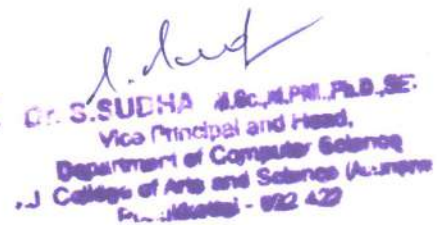 S. Sud
Dr. S.SUDHA M.Sc.,M.Phil.,Ph.D.,SET
Vice Principal and Head,
Department of Computer Science
J.J College of Arts and Science
- 622 422